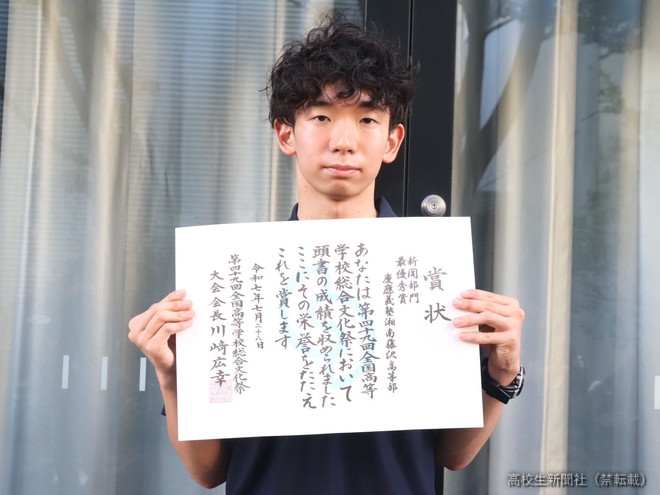 賞状
新聞部門
最優秀賞
慶應義塾湘南藤沢高等部
あなたは第四十九回全国高等
学校総合文化祭において
頭書の成績を収められました
ここにその栄誉をたたえ
これを賞します
令和七年七月二十八日
第四十九回全国高等学校総合文化祭
大会会長川﨑広幸
高校生新聞社（禁転載）